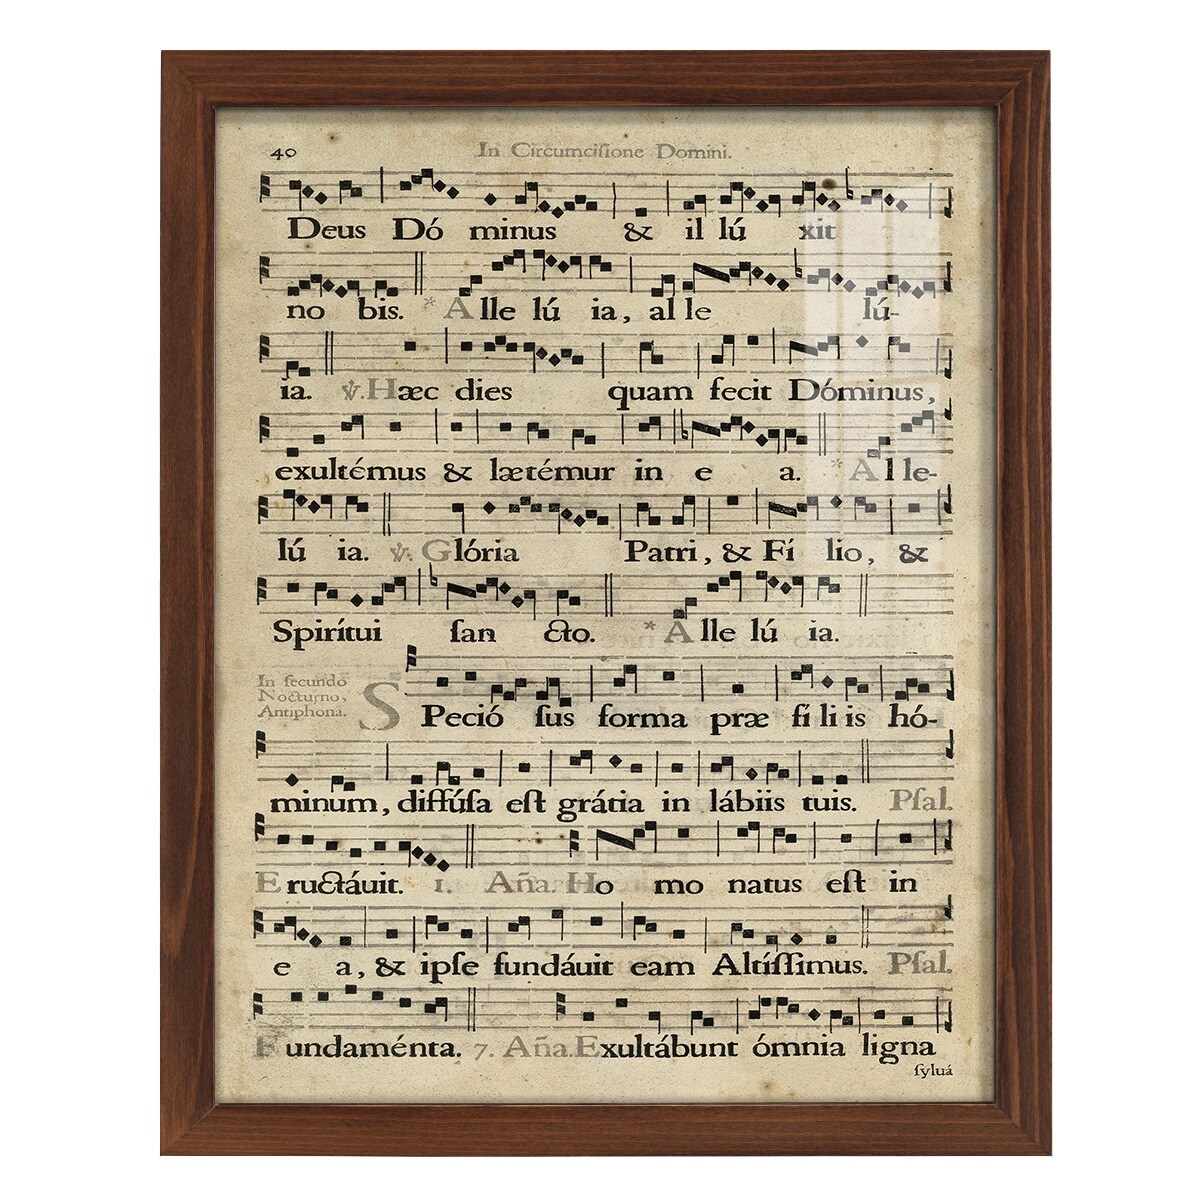 40 In Circumciſione Domini.
Deus Dó minus & il lú xit
no bis. * A lle lú ia, al le lú-
ia. ℣. Hæc dies quam fecit Dóminus,
exultémus & lætémur in e a. * A l le-
lú ia. ℣. Glória Patri, & Fí lio, &
Spirítui ſan cto. * A lle lú ia.
In ſecundo
Nocturno,
Antiphona.
SPeció ſus forma præ fí li is hó-
minum, diffúſa eſt grátia in lábiis tuis. Pſal.
E ructáuit. 1. Aña. Ho mo natus eſt in
e a, & ipſe fundáuit eam Altíſſimus. Pſal.
Fundaménta. 7. Aña. Exultábunt ómnia ligna
ſyluá